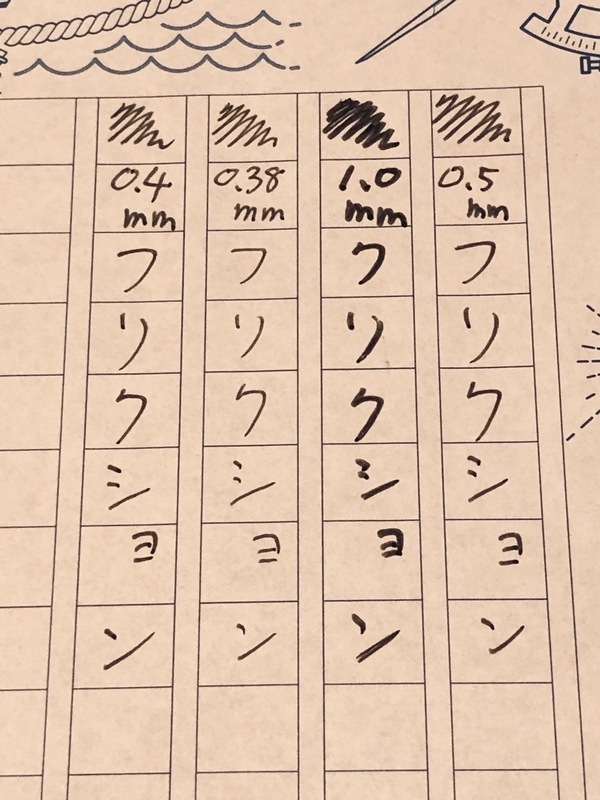 0.5
mm
フリクション
1.0
mm
クリクション
0.38
mm
フリクション
0.4
mm
フリクション